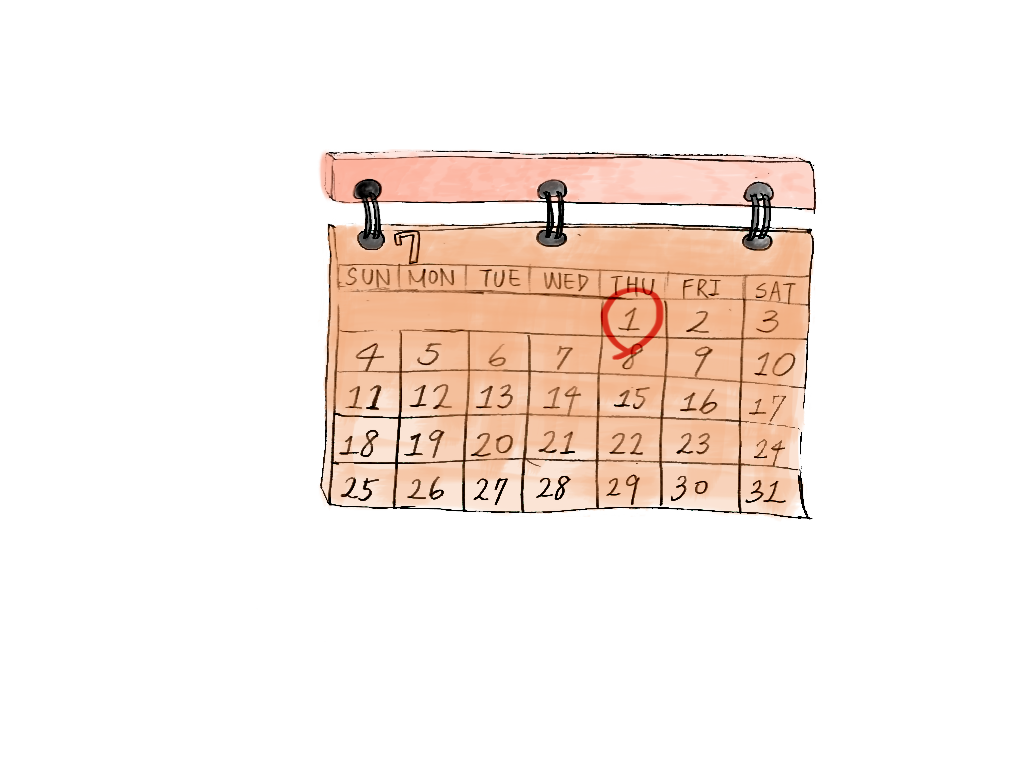 7
SUN MON TUE WED THU FRI SAT
1 2 3
4 5 6 7 8 9 10
11 12 13 14 15 16 17
18 19 20 21 22 23 24
25 26 27 28 29 30 31